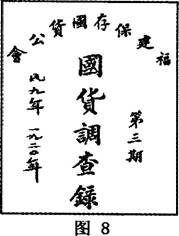 福建保存國貨公會
第三期
國貨調查錄
民九年 一九二〇年
图 8